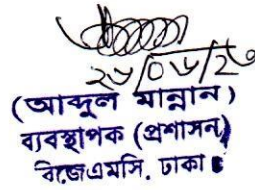 ২৮/০৮/২৩
(আব্দুল মান্নান)
ব্যবস্থাপক (প্রশাসন)
বিজেএমসি. ঢাকা।